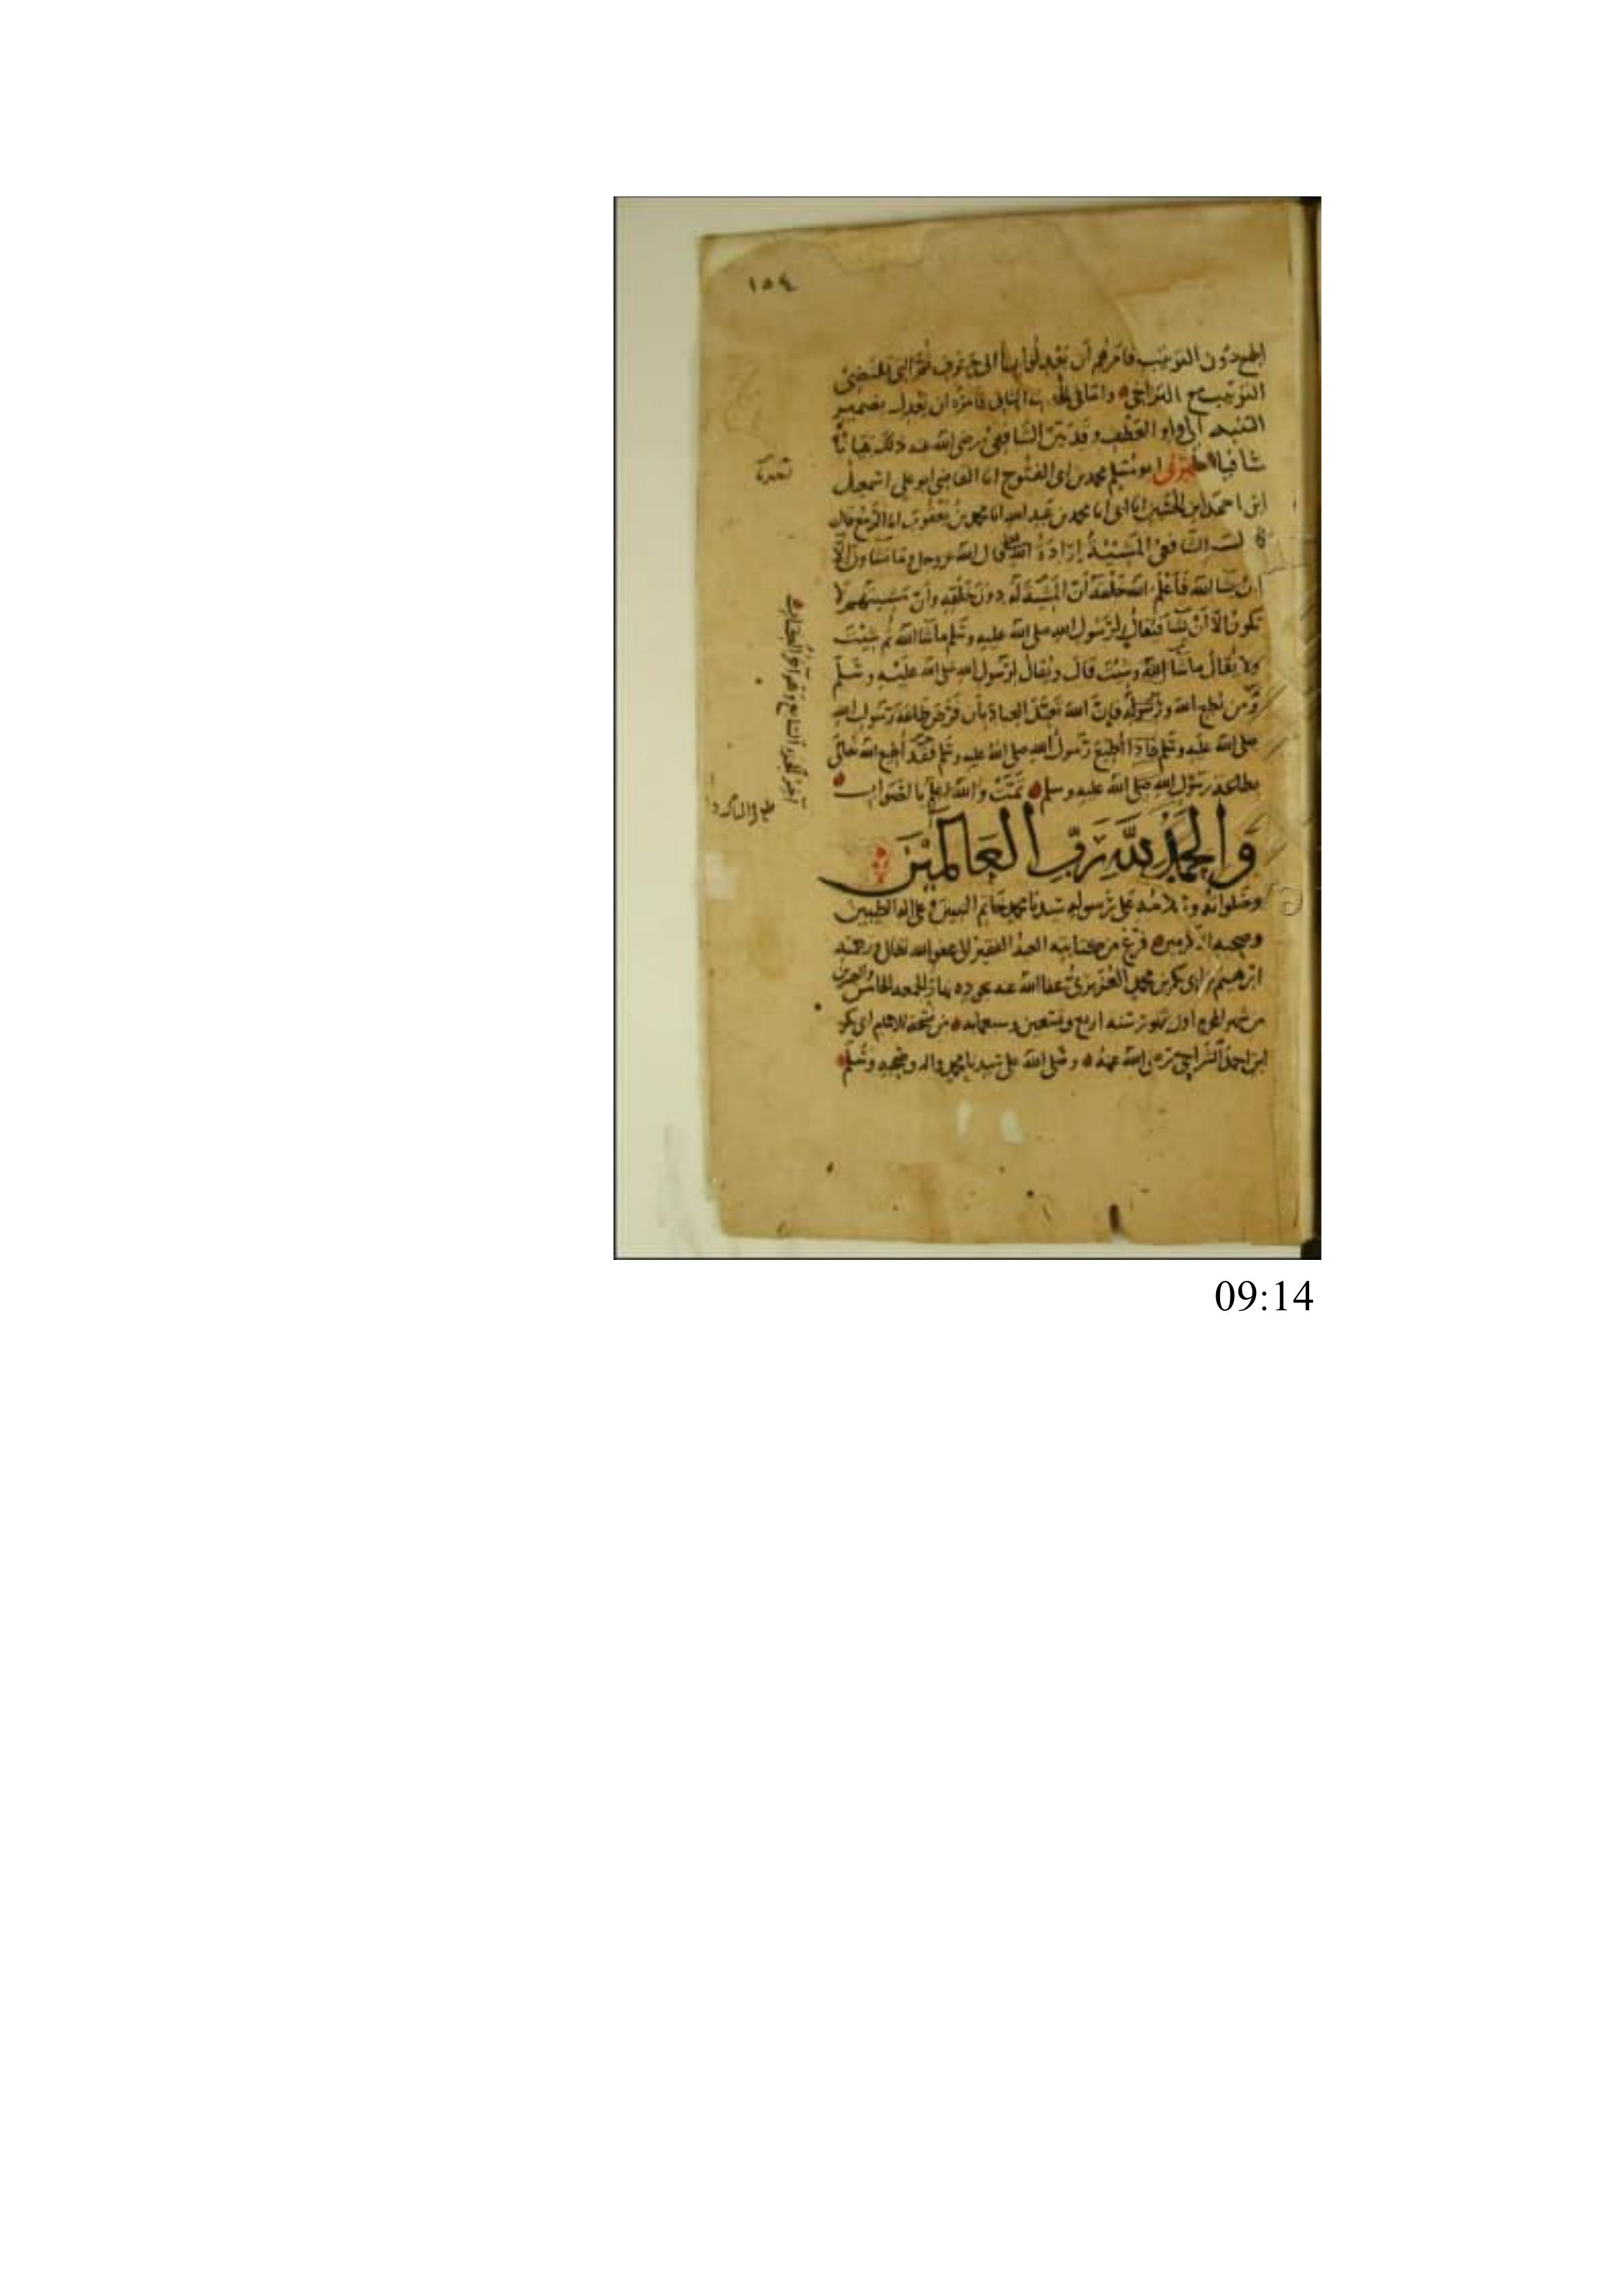 ١٥٤
الجمع دون الترتيب فأمرهم أن يعدلوا بها إلى حرف ثم التي تقتضي
الترتيب مع التراخي وأما في الثاني فأمره أن يعدل بضمير
التثنية إلى واو العطف وقد بين الشافعي رضي الله عنه ذلك بيانا
شافيا أبو مسلم محمد بن أبي الفتوح أنا القاضي أبو علي اسمعيل
ابن احمد ابن الحسين أنا أبي أنا محمد بن عبد الله أنا محمد بن يعقوب أنا الربيع قال
الشافعي المشيئة إرادة الله قال الله عز وجل وما تشاؤن إلا
أن يشا الله فأعلم الله خلقه أن المشيئة له دون خلقه وأن مشيئتهم لا
تكون إلا أن يشا فيقال لرسول الله صلى الله عليه وسلم ما شا الله ثم شئت
ولا يقال ما شا الله وشئت قال ويقال لرسول الله صلى الله عليه وسلم
ومن يطع الله ورسوله فإن الله تعبد العباد بأن فرض طاعة رسول الله
صلى الله عليه وسلم فإذا أطيع رسول الله صلى الله عليه وسلم فقد أطيع الله تعالى
بطاعة رسول الله صلى الله عليه وسلم تمت والله أعلم بالصواب
وَالحمدُ للّهِ رَبِّ العَالَمِيْنَ
وصلواته وسلامه على رسوله سيدنا محمد خاتم النبيين وعلى اله الطيبين
وصحبه فرغ من كتابته العبد الفقير إلى عفو الله تعالى ورحمته
ابرهيم بن أبي بكر بن محمد عفا الله عنه نهار الجمعة الخامس والعشرين
من شهر المحرم أول شهور سنة اربع وسبعمايه من نسخة للامام أبي بكر
ابن احمد رضي الله عنه وصلى الله على سيدنا محمد واله وصحبه وسلم
آخر الجزء السابع وهو آخر الكتاب